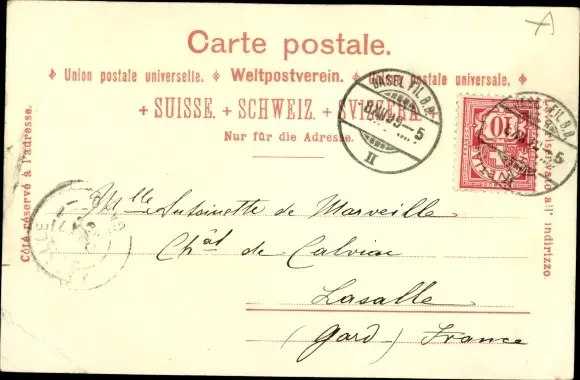 Carte postale.
Union postale universelle. Weltpostverein. Unione postale universale.
SUISSE. SCHWEIZ. SVIZZERA.
Nur für die Adresse.
Côté réservé à l'adresse.
BASEL FIL. B.B.
5
II
10
Mlle Antoinette de Marveille
Chât de Calviac
Lasalle
(Gard) France
all' indirizzo.